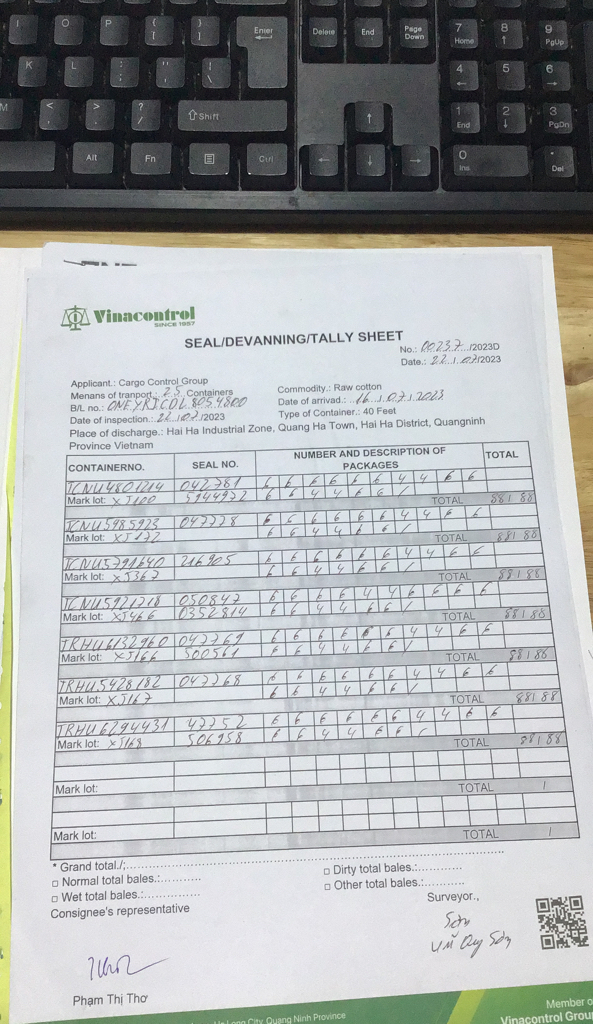 I O P { [ } ] Enter Delete End Page Down 7 Home 8 ↑ 9 PgUp
K L : ; " ' | \ 4 ← 5 6 →
M < , > . ? / ⇧Shift ↑ 1 End 2 ↓ 3 PgDn
Alt Fn Ctrl ← ↓ → 0 Ins . Del
Vinacontrol
SINCE 1957
SEAL/DEVANNING/TALLY SHEET
No.: 00237 /2023D
Date.: 22 / 07/2023
Applicant.: Cargo Control Group
Commodity.: Raw cotton
Menans of tranport.: 25 Containers
Date of arrivad.: 16 / 07 / 2023
B/L no.: ONEYRICDL8054800
Type of Container.: 40 Feet
Date of inspection.: 22 / 07 /2023
Place of discharge.: Hai Ha Industrial Zone, Quang Ha Town, Hai Ha District, Quangninh
Province Vietnam
CONTAINERNO. SEAL NO. NUMBER AND DESCRIPTION OF PACKAGES TOTAL
TCNU4801214 042781 6 6 6 6 6 6 4 4 6 6
Mark lot: XJ100 5944972 6 6 4 4 6 6 / TOTAL 88/88
TCNU5985923 047778 6 6 6 6 6 6 4 4 6 6
Mark lot: XJ172 6 6 4 4 6 6 / TOTAL 88/88
TCNU5791640 216905 6 6 6 6 6 6 4 4 6 6
Mark lot: XJ367 6 6 4 4 6 6 / TOTAL 88/88
TCNU5921718 050847 6 6 6 6 4 4 6 6 6 6
Mark lot: XJ466 0352814 6 6 4 4 6 6 / TOTAL 88/88
TRHU6132960 047769 6 6 6 6 6 6 4 4 6 6
Mark lot: XJ166 500561 6 6 4 4 6 6 / TOTAL 88/88
TRHU5428182 047768 6 6 6 6 6 6 4 4 6 6
Mark lot: XJ167 6 6 4 4 6 6 / TOTAL 88/88
TRHU6294431 47752 6 6 6 6 6 6 4 4 6 6
Mark lot: XJ168 506958 6 6 4 4 6 6 / TOTAL 88/88
Mark lot: TOTAL /
Mark lot: TOTAL /
* Grand total./:
□ Normal total bales.:
□ Dirty total bales.:
□ Wet total bales.:
□ Other total bales.:
Consignee's representative
Surveyor.,
Sơn
Vũ Duy Sơn
Phạm Thị Thơ
Long City, Quang Ninh Province
Member o
Vinacontrol Grou